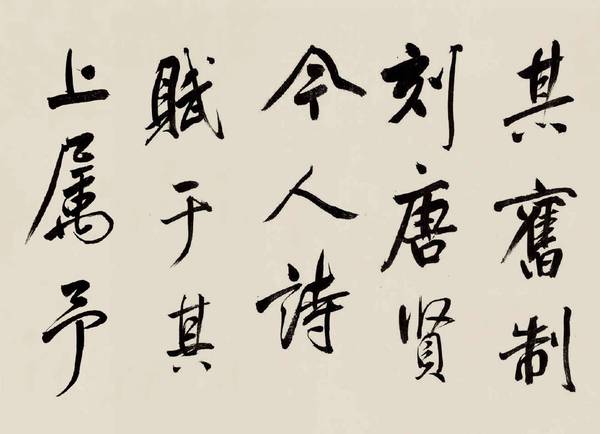 其舊制
刻唐贤
今人詩
賦于其
上属予